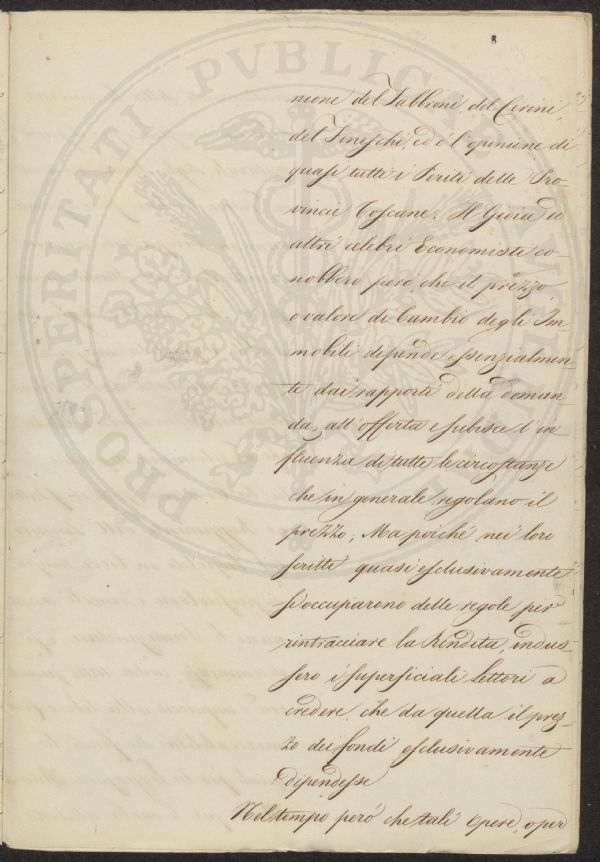 8
nione del Fabbroni, del Cerini,
del Fineschi, ed è l'opinione di
quasi tutti i Periti delle Pro-
vincie Toscane. Il Gioia ed
altri celebri Economisti co-
nobbero però, che il prezzo,
o valore di Cambio degli Im-
mobili dipende essenzialmen-
te dai rapporti della doman-
da, all'offerta e subisce l'in-
fluenza di tutte le circostanze
che in generale regolano il
prezzo; Ma poichè nei loro
scritti quasi esclusivamente
si occuparono delle regole per
rintracciare la Rendita, indus-
sero i superficiali Lettori a
credere, che da quella il prez-
zo dei fondi esclusivamente
dipendesse
Nel tempo però che tali Opere, oper
PROSPERITATI PVBLICAE